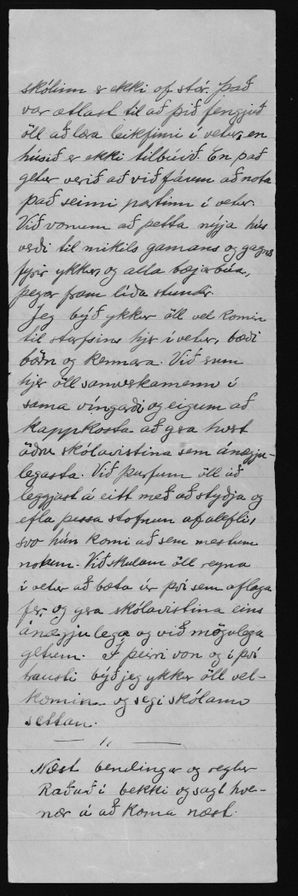 skólinn er ekki of stór. Það
var ætlast til að þið fengjuð
öll að læra leikfimi í vetur, en
húsið er ekki tilbúið. En það
getur verið að við fáum að nota
það seinni partinn í vetur.
Við vonum að þetta nýja hús
verði til mikils gamans og gagns
fyrir ykkur, og alla bæjarbúa,
þegar fram líða stundir.
Jeg býð ykkur öll vel komin
til starfsins hjer í vetur, bæði
börn og kennara. Við erum
hjer öll samverkamenn í
sama víngarði og eigum að
kappkosta að gera hvert
öðru skólavistina sem ánægju-
legasta. Við þurfum öll að
leggjast á eitt með að styðja og
efla þessa stofnun af alefli,
svo hún komi að sem mestum
notum. Við skulum öll reyna
í vetur að bæta úr því sem aflaga
fer og gera skólavistina eins
ánægjulega og við mögulega
getum. Í þeirri von og í því
trausti býð jeg ykkur öll vel-
komin og segi skólann
settan.
Næst bendingar og reglur
Raðað í bekki og sagt hve-
nær á að koma næst.